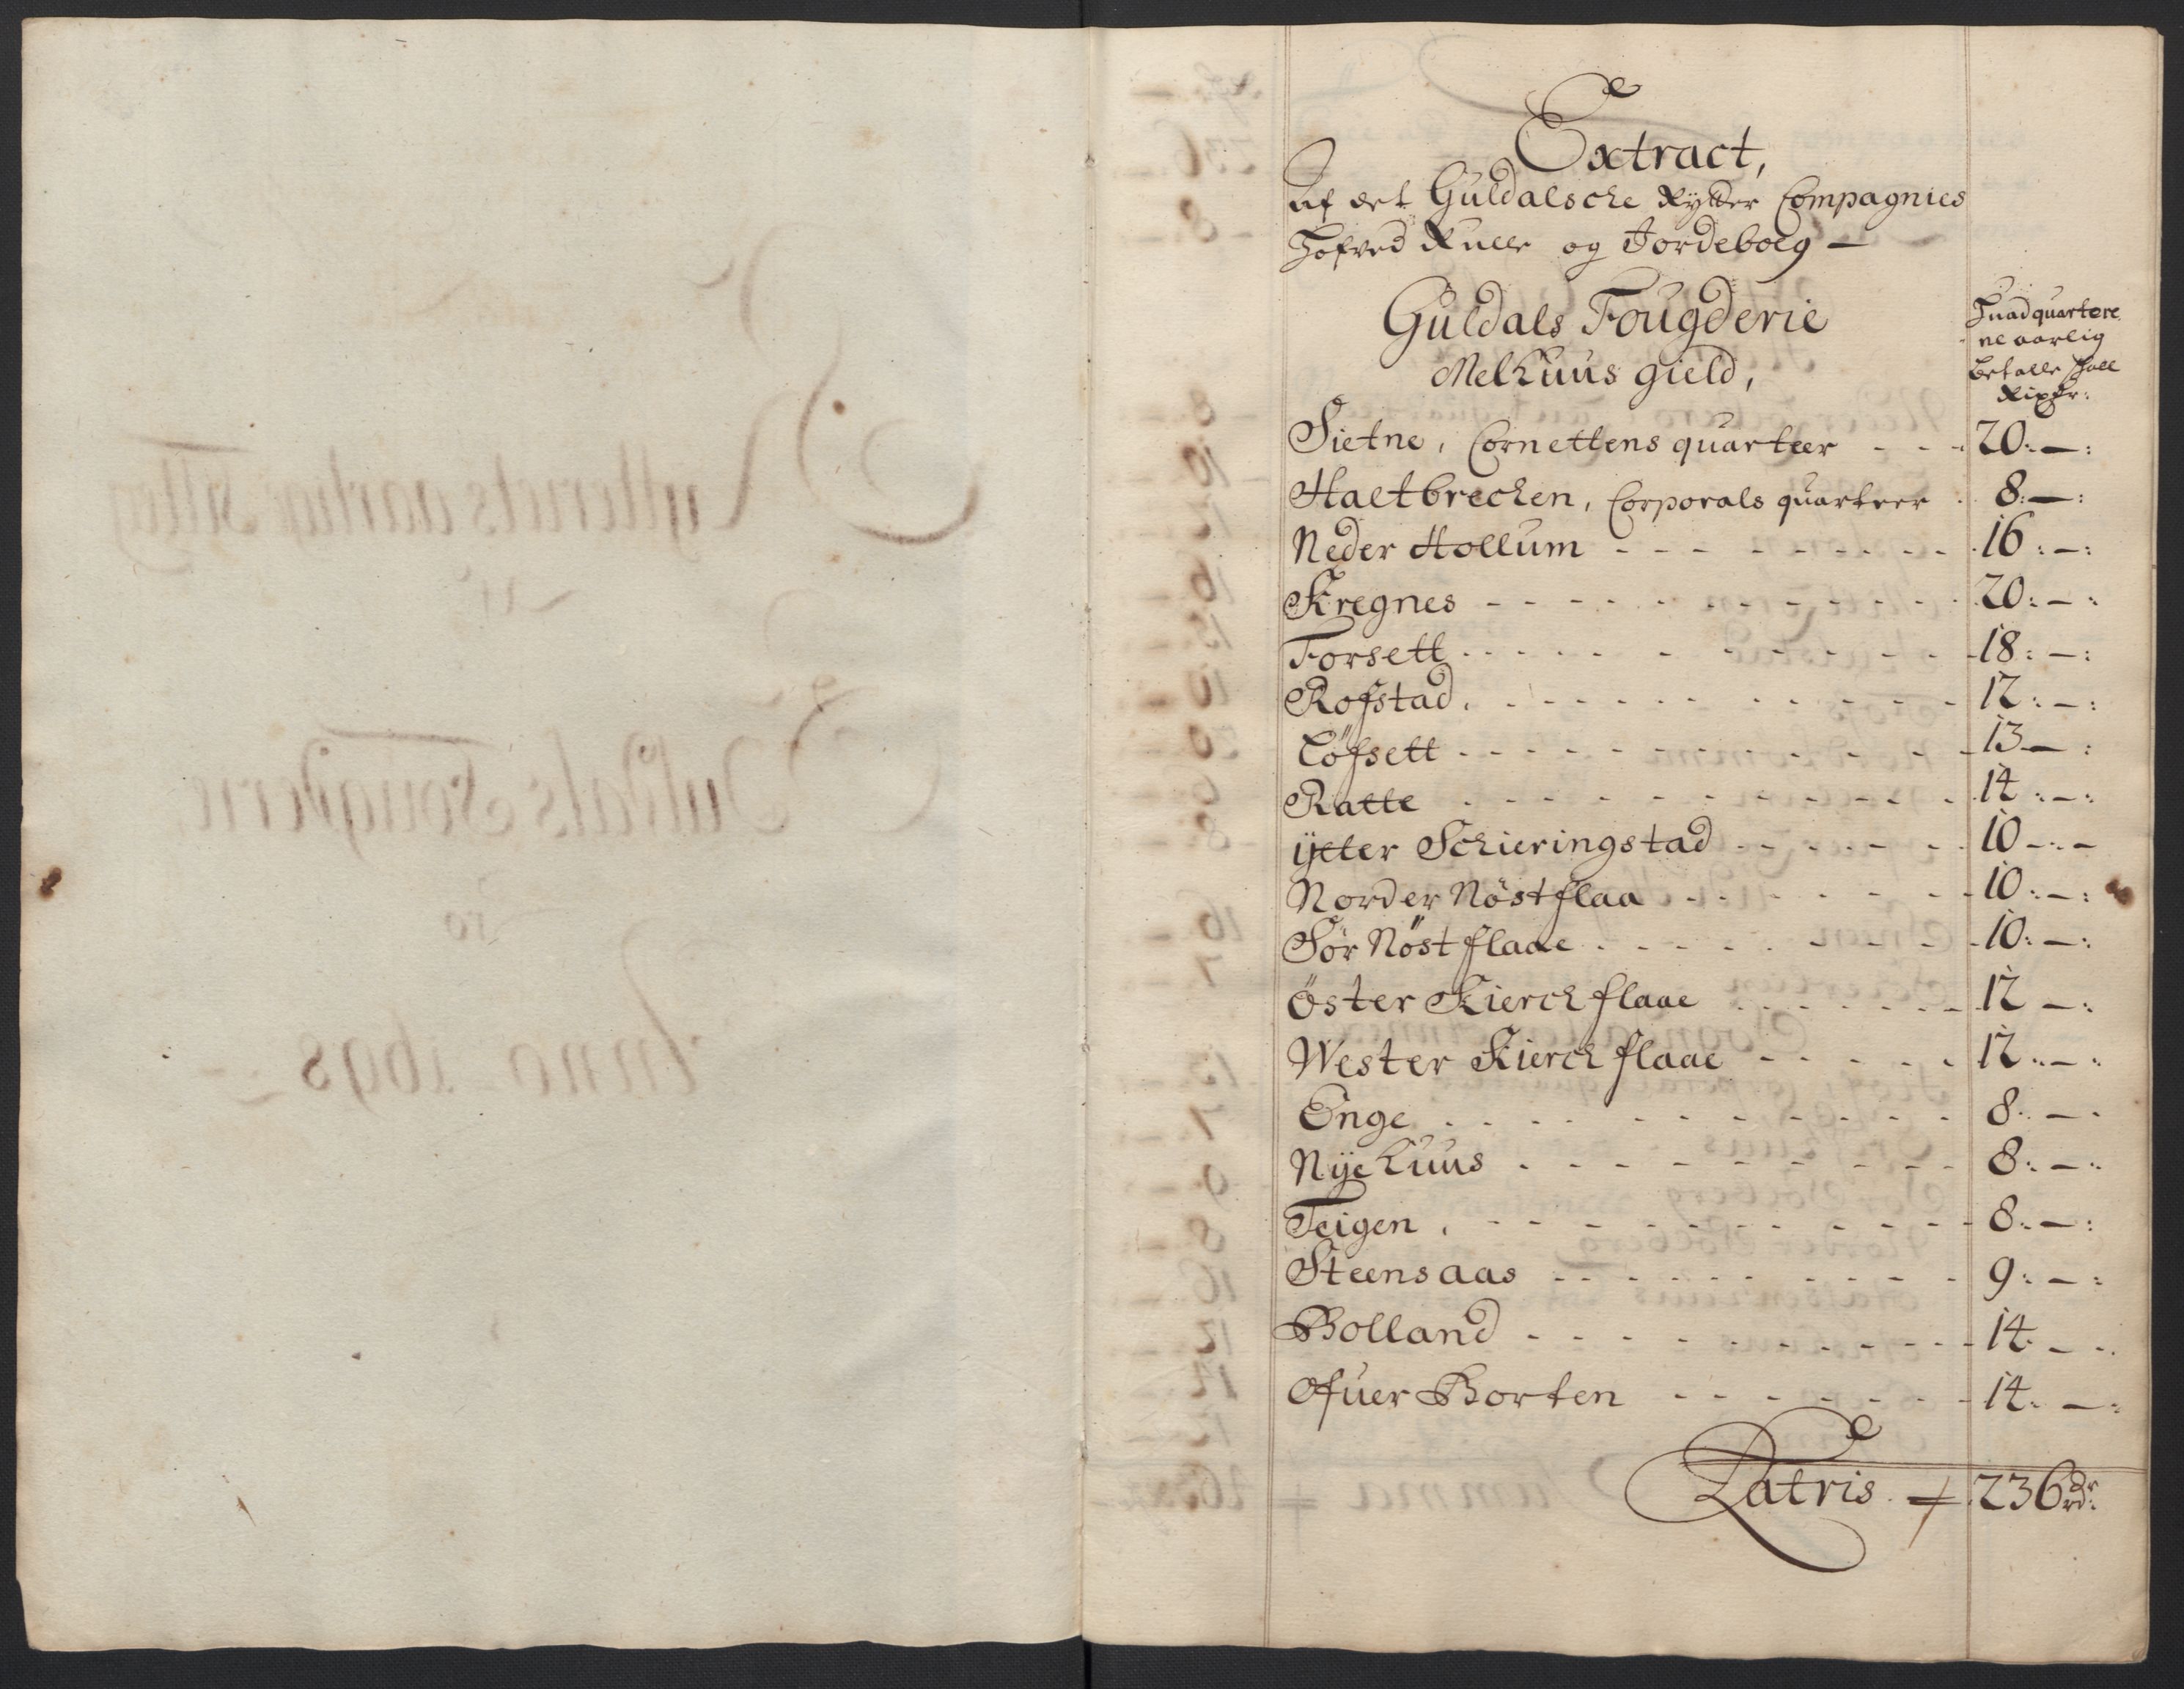 Extract,
af det Guldalsche Rytter Compagnies
Hofved Rulle og Jordeboeg —
Guldals Fougderie
Melhuus gield,
Huad quartere
ne aarlig
betalle schall
Rixdr:
Sietne, Cornettens quarteer - - - 20:—:
Haltbrechen, Corporals quarteer . 8:—:
Neder Hollum - - - - - - - - 16:—:
Kregnes - - - - - - - - - - 20:—:
Forsett - - - - - - - - - - 18:—:
Rofstad. - - - - - - - - - - 12:—:
Löfsett - - - - - - - - - - 13—:
Ratte - - - - - - - - - - 14:—:
ÿtter Schieringstad - - - - - - 10—:—
Norder Nöstflaa - - - - - - - 10:—:
Sör Nöstflaae - - - - - - - - 10:—:
Öster Kierch flaae - - - - - - 12—:
Wester Kierch flaae - - - - - 12:—:
Enge - - - - - - - - - - 8:—-
Nÿehuus - - - - - - - - - 8:—:
Teigen, - - - - - - - - - - 8:—:
Steensaas - - - - - - - - - 9:—:
Bolland - - - - - - - - - - 14:—:
Ofuer Borten - - - - - - - 14:—:
Latris 236 rdr:
Rytteriets aarlige Tillæg
Guldals Fougderie
Anno 1698